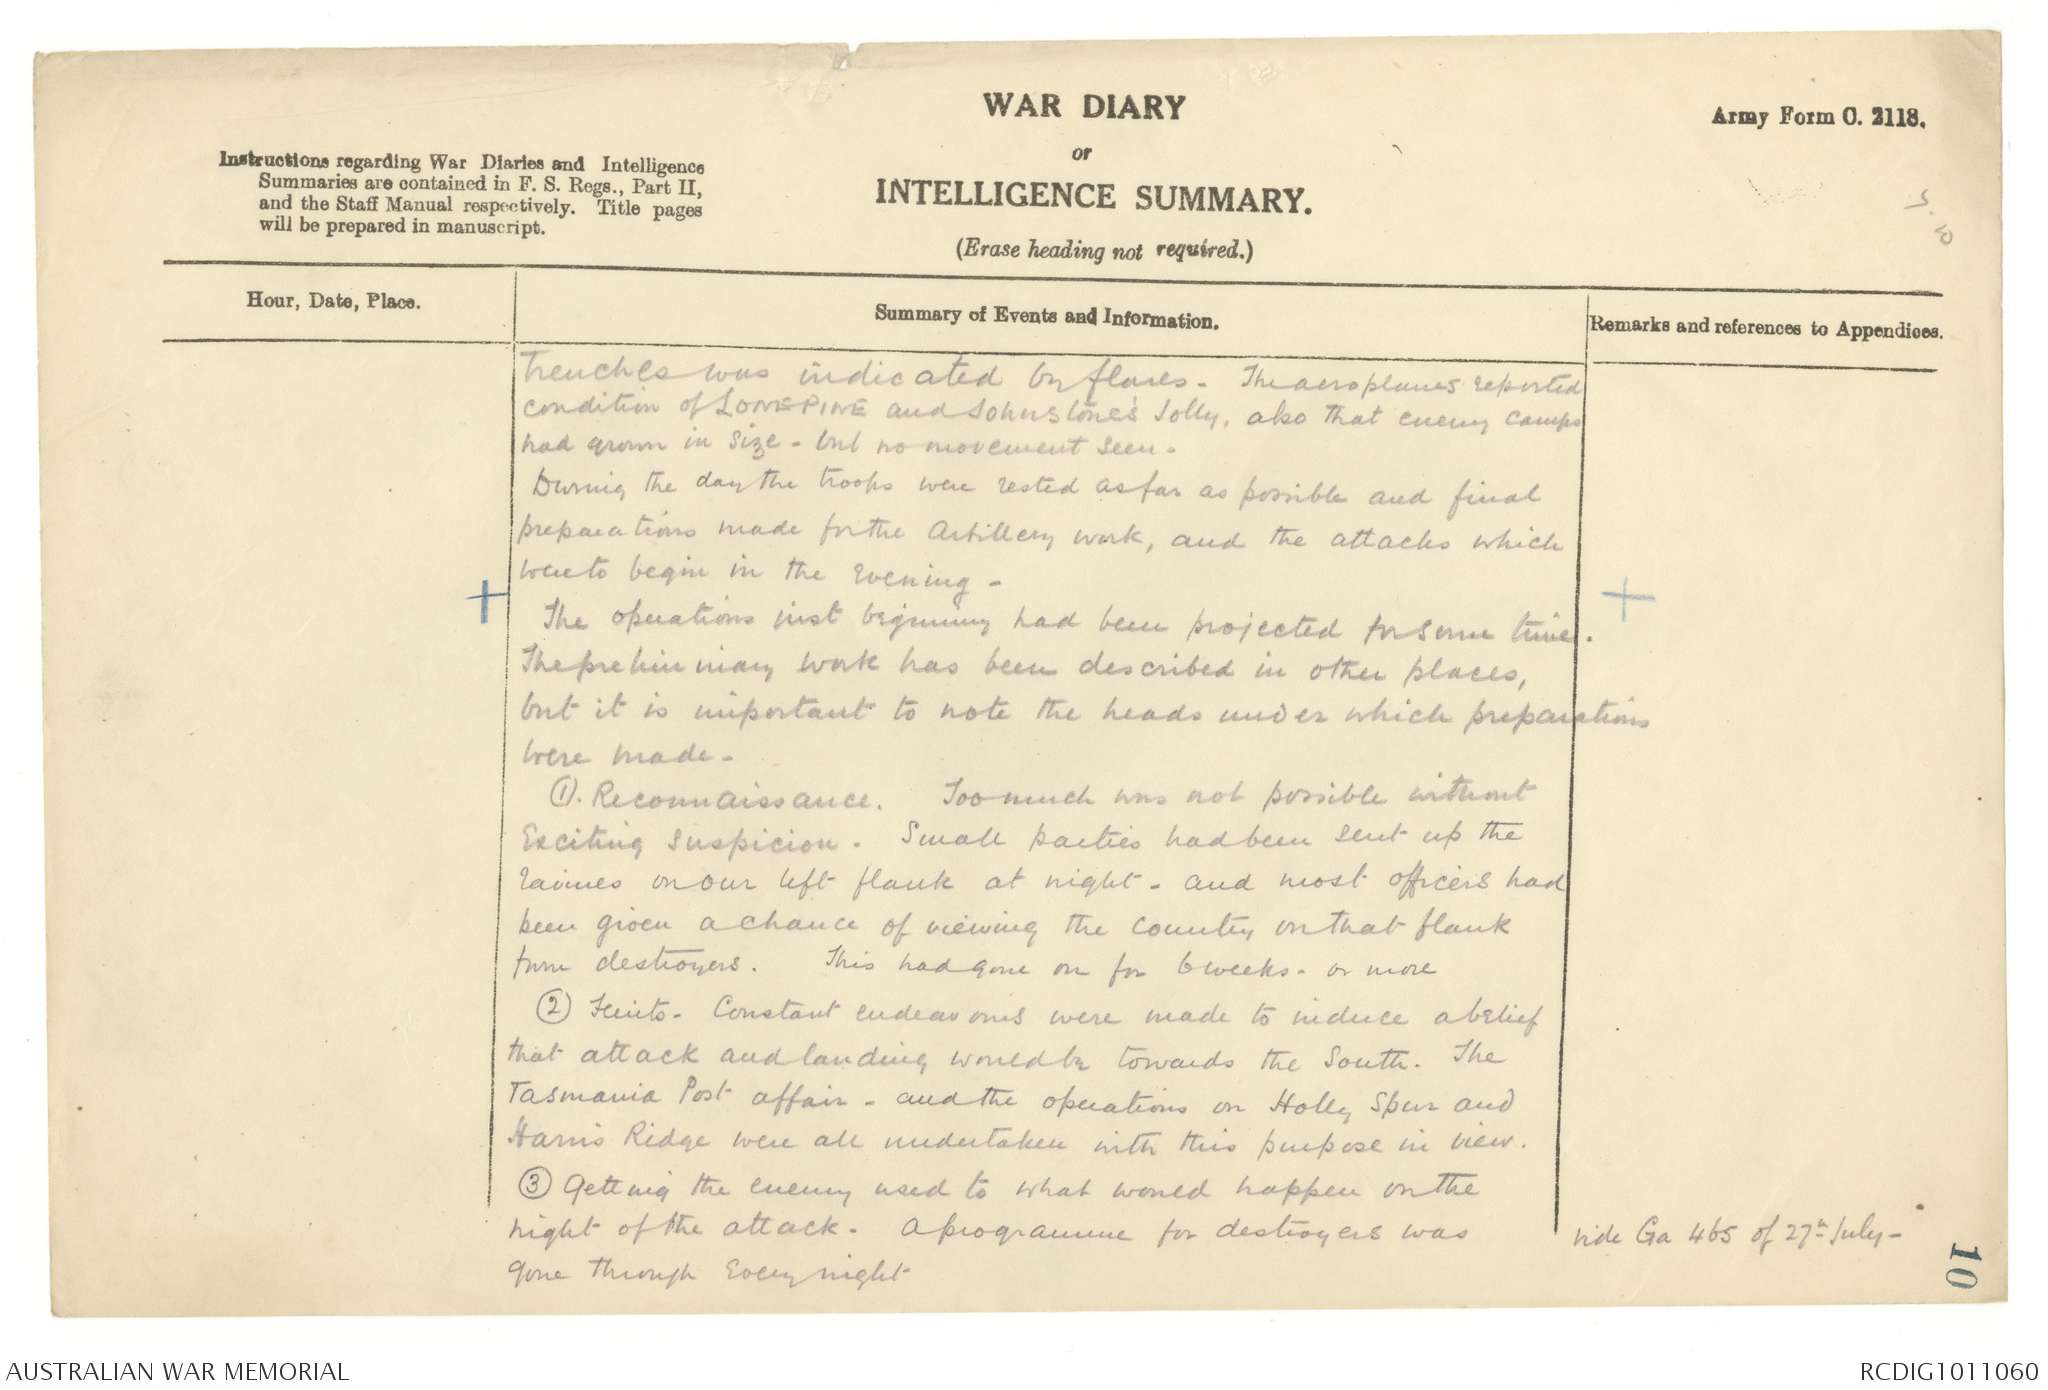 WAR DIARY
or
INTELLIGENCE SUMMARY.
(Erase heading not required.)
Army Form C. 2118.
Instructions regarding War Diaries and Intelligence
Summaries are contained in F. S. Regs., Part II,
and the Staff Manual respectively. Title pages
will be prepared in manuscript.
Hour, Date, Place.
Summary of Events and Information.
Remarks and references to Appendices.
trenches was indicated by flares - The aeroplanes reported
condition of LONE PINE and Johnstone's Jolly, also that enemy camps
had grown in size - but no movement seen -
During the day the troops were rested as far as possible and final
preparations made for the Artillery work, and the attacks which
were to begin in the Evening -
The operations just beginning had been projected for some time.
The preliminary work has been described in other places,
but it is important to note the heads under which preparations
were made -
①. Reconnaissance. Too much was not possible without
Exciting suspicion. Small parties had been sent up the
ravines on our left flank at night - and most officers had
been given a chance of viewing the country on that flank
from destroyers. This had gone on for 6 weeks - or more
② Feints - Constant endeavours were made to induce a belief
that attack and landing would be towards the South. The
Tasmania Post affair - and the operations on Holly Spur and
Harris Ridge were all undertaken with this purpose in view.
③ Getting the enemy used to what would happen on the
night of the attack - A programme for destroyers was
gone through every night
vide Ga 465 of 27th July -
10
AUSTRALIAN WAR MEMORIAL
RCDIG1011060